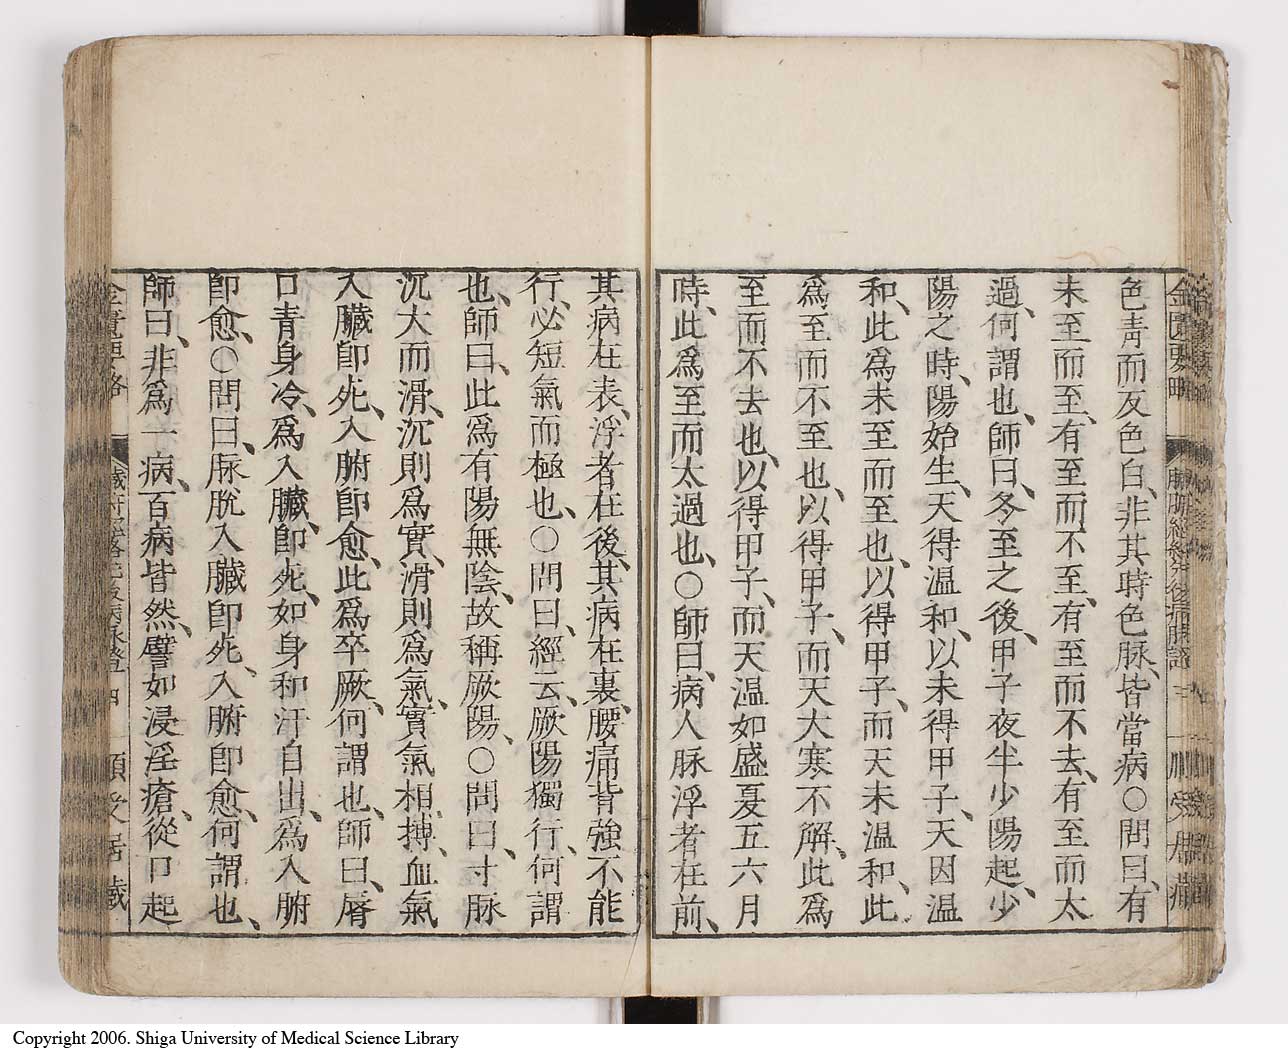 金匱要略
色青而反色白、非其時色脉、皆當病〇問曰、有
未至而至、有至而不至、有至而不去、有至而太
過、何謂也、師曰、冬至之後、甲子夜半少陽起、少
陽之時、陽始生、天得温和、以未得甲子、天因温
和、此為未至而至也、以得甲子、而天未温和、此
為至而不至也、以得甲子、而天大寒不解、此為
至而不去也、以得甲子、而天温如盛夏五六月
時、此為至而太過也、〇師曰、病人脉浮者在前、
其病在表、浮者在後、其病在裏、腰痛背強不能
行、必短氣而極也、〇問曰、經云、厥陽獨行、何謂
也、師曰、此為有陽無陰、故稱厥陽、〇問曰、寸脉
沉大而滑、沉則為實、滑則為氣、實氣相搏、血氣
入臟即死、入腑即愈、此為卒厥、何謂也、師曰、唇
口青身冷、為入臟、即死、如身和汗自出、為入腑
即愈、〇問曰、脉脫入臟即死、入腑即愈、何謂也、
師曰、非為一病、百病皆然、譬如浸淫瘡、從口起
金匱要略
Copyright 2006. Shiga University of Medical Science Library